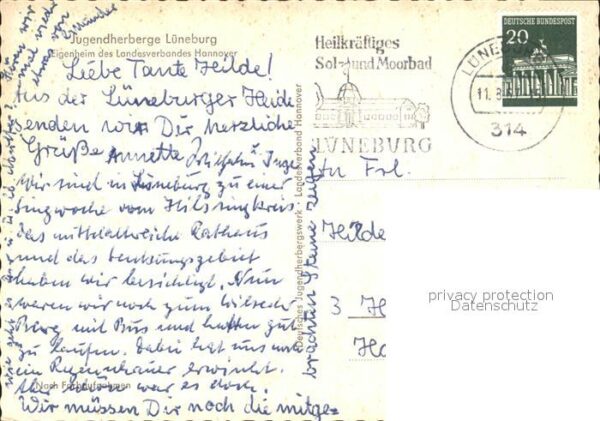 Jugendherberge Lüneburg
Eigenheim des Landesverbandes Hannover
Liebe Tante Hilde!
Aus der Lüneburger Heide
senden wir Dir herzliche
Grüße Annette Wilhelm Inge
Wir sind in Lüneburg zu einer
Singwoche vom Hilssingkreis
das mittelalterliche Rathaus
und das
haben wir besichtigt. Nun
waren wir noch zum Wilseder
Berg mit Bus und hatten gut
zu laufen. Dabei hat uns noch
ein Regenschauer erwischt.
Aber schön war es doch.
Wir müssen Dir noch die mitge-
brachten Steine zeigen
Nach Farbaufnahmen
Deutsches Jugendherbergswerk · Landesverband Hannover
Heilkräftiges
Sol- und Moorbad
LÜNEBURG
LÜNEBURG
11. 8.
314
DEUTSCHE BUNDESPOST
20
An Frl.
Hilde
3 H
Ha
privacy protection
Datenschutz